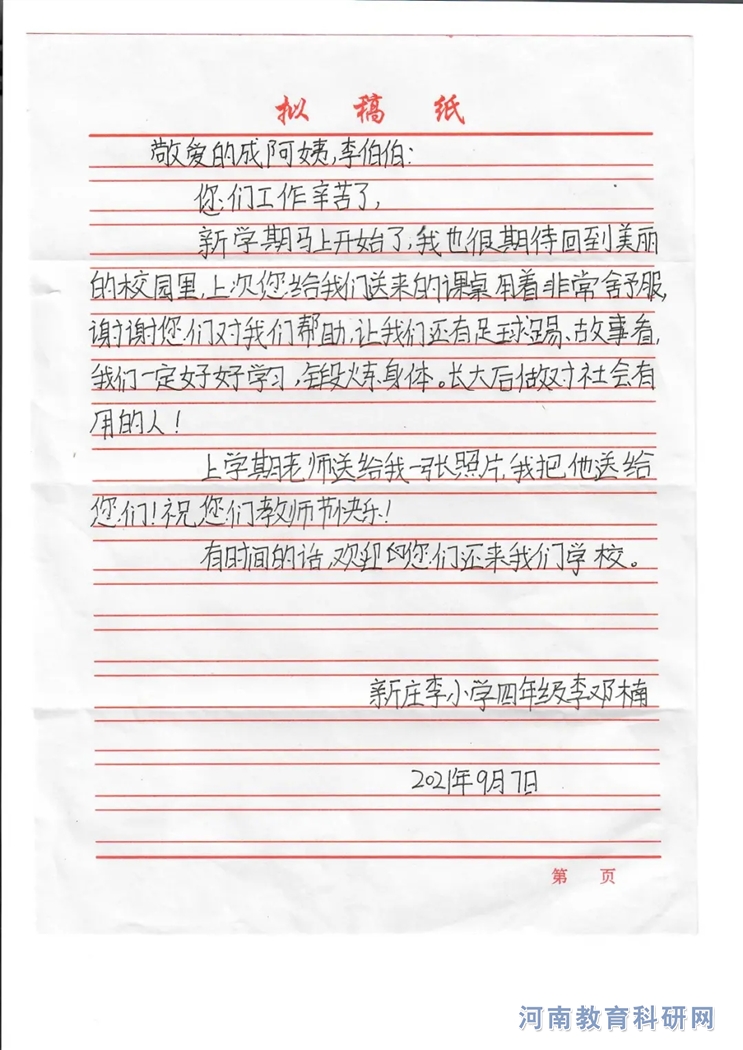 拟稿纸
敬爱的成阿姨,李伯伯:
您们工作辛苦了,
新学期马上开始了,我也很期待回到美丽
的校园里,上次您给我们送来的课桌用着非常舒服,
谢谢您们对我们帮助,让我们还有足球踢、故事看,
我们一定好好学习,锻炼身体。长大后做对社会有
用的人!
上学期老师送给我一张照片,我把他送给
您们!祝您们教师节快乐!
有时间的话,欢迎您们还来我们学校。
新庄李小学四年级李邓楠
2021年9月7日
第 页
河南教育科研网